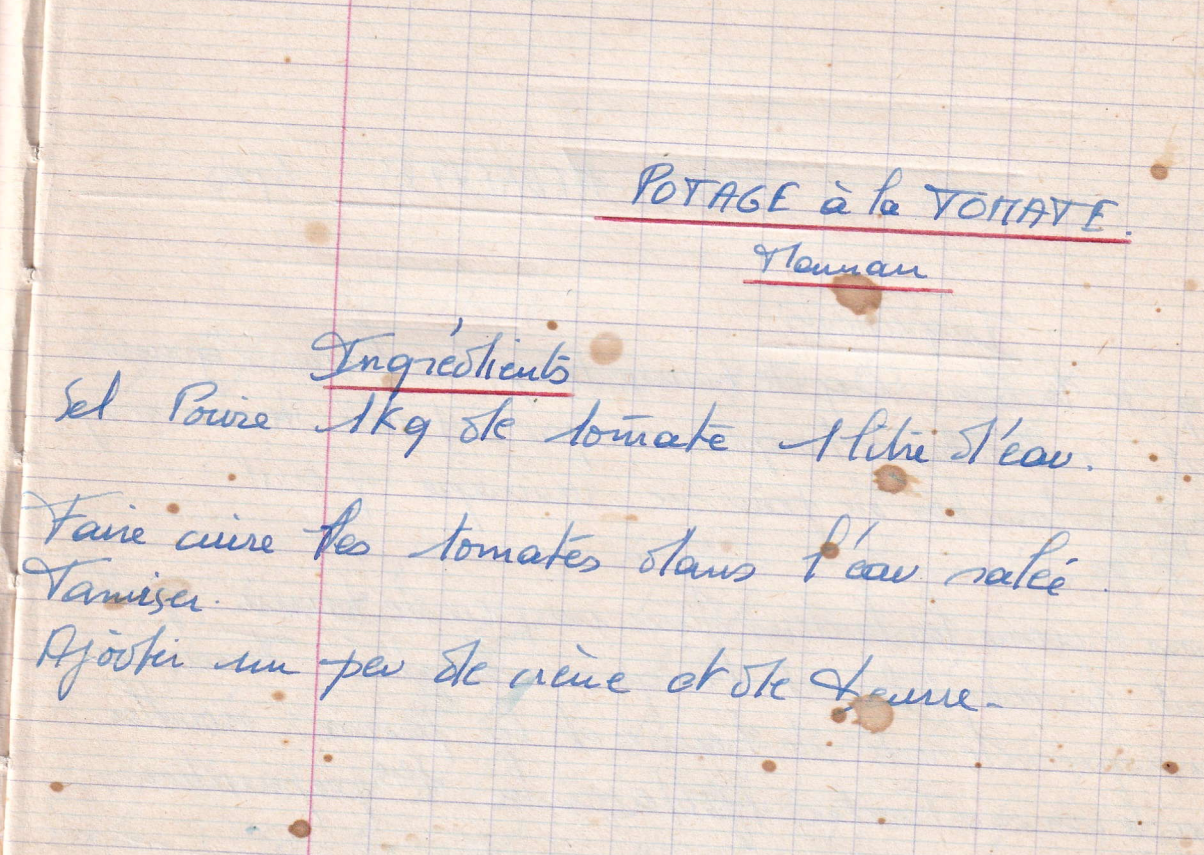 POTAGE à la TOMATE.
Maman
Ingrédients
Sel Poivre 1Kg de tomate 1 litre d'eau.
Faire cuire les tomates dans l'eau salée.
Tamiser.
Ajôuter un peu de crème et de beurre.